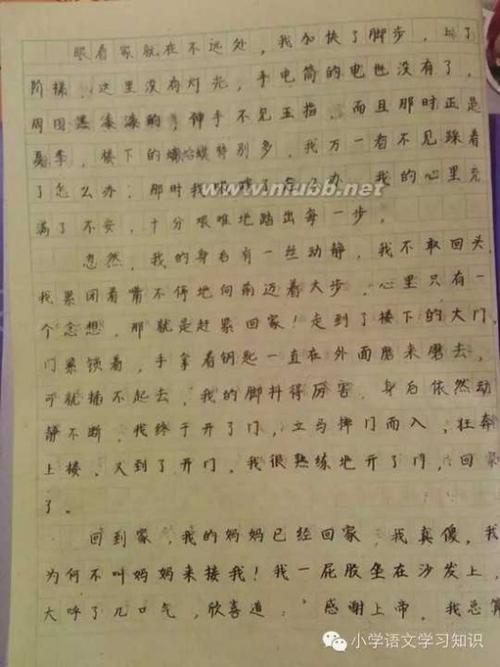 眼看家就在不远处，我加快了脚步，上了
阶梯，这里没有灯光，手电筒的电也没有了，
周围黑漆漆的，伸手不见五指，而且那时正是
夏季，楼下的特别多，我万一看不见踩着
了怎么办：那时我怎么办，我的心里充
满了不安，十分艰难地踏出每一步。
忽然，我的身后有一丝动静，我不敢回头，
我紧闭着嘴不停地向前迈着大步，心里只有一
个念想，那就是赶紧回家！走到了楼下的大门，
门紧锁着，手拿着钥匙一直在外面磨来磨去，
可就插不起去，我的脚抖得厉害，身后依然动
静不断，我终于开了门，立马摔门而入，狂奔
上楼，又到了开门，我很熟练地开了门，回家
了。
回到家，我的妈妈已经回家，我真傻，我
为何不叫妈妈来接我！我一屁股坐在沙发上，
大呼了几口气，欣喜道：“感谢上帝，我总算
www.mubb.net
小学语文学习知识